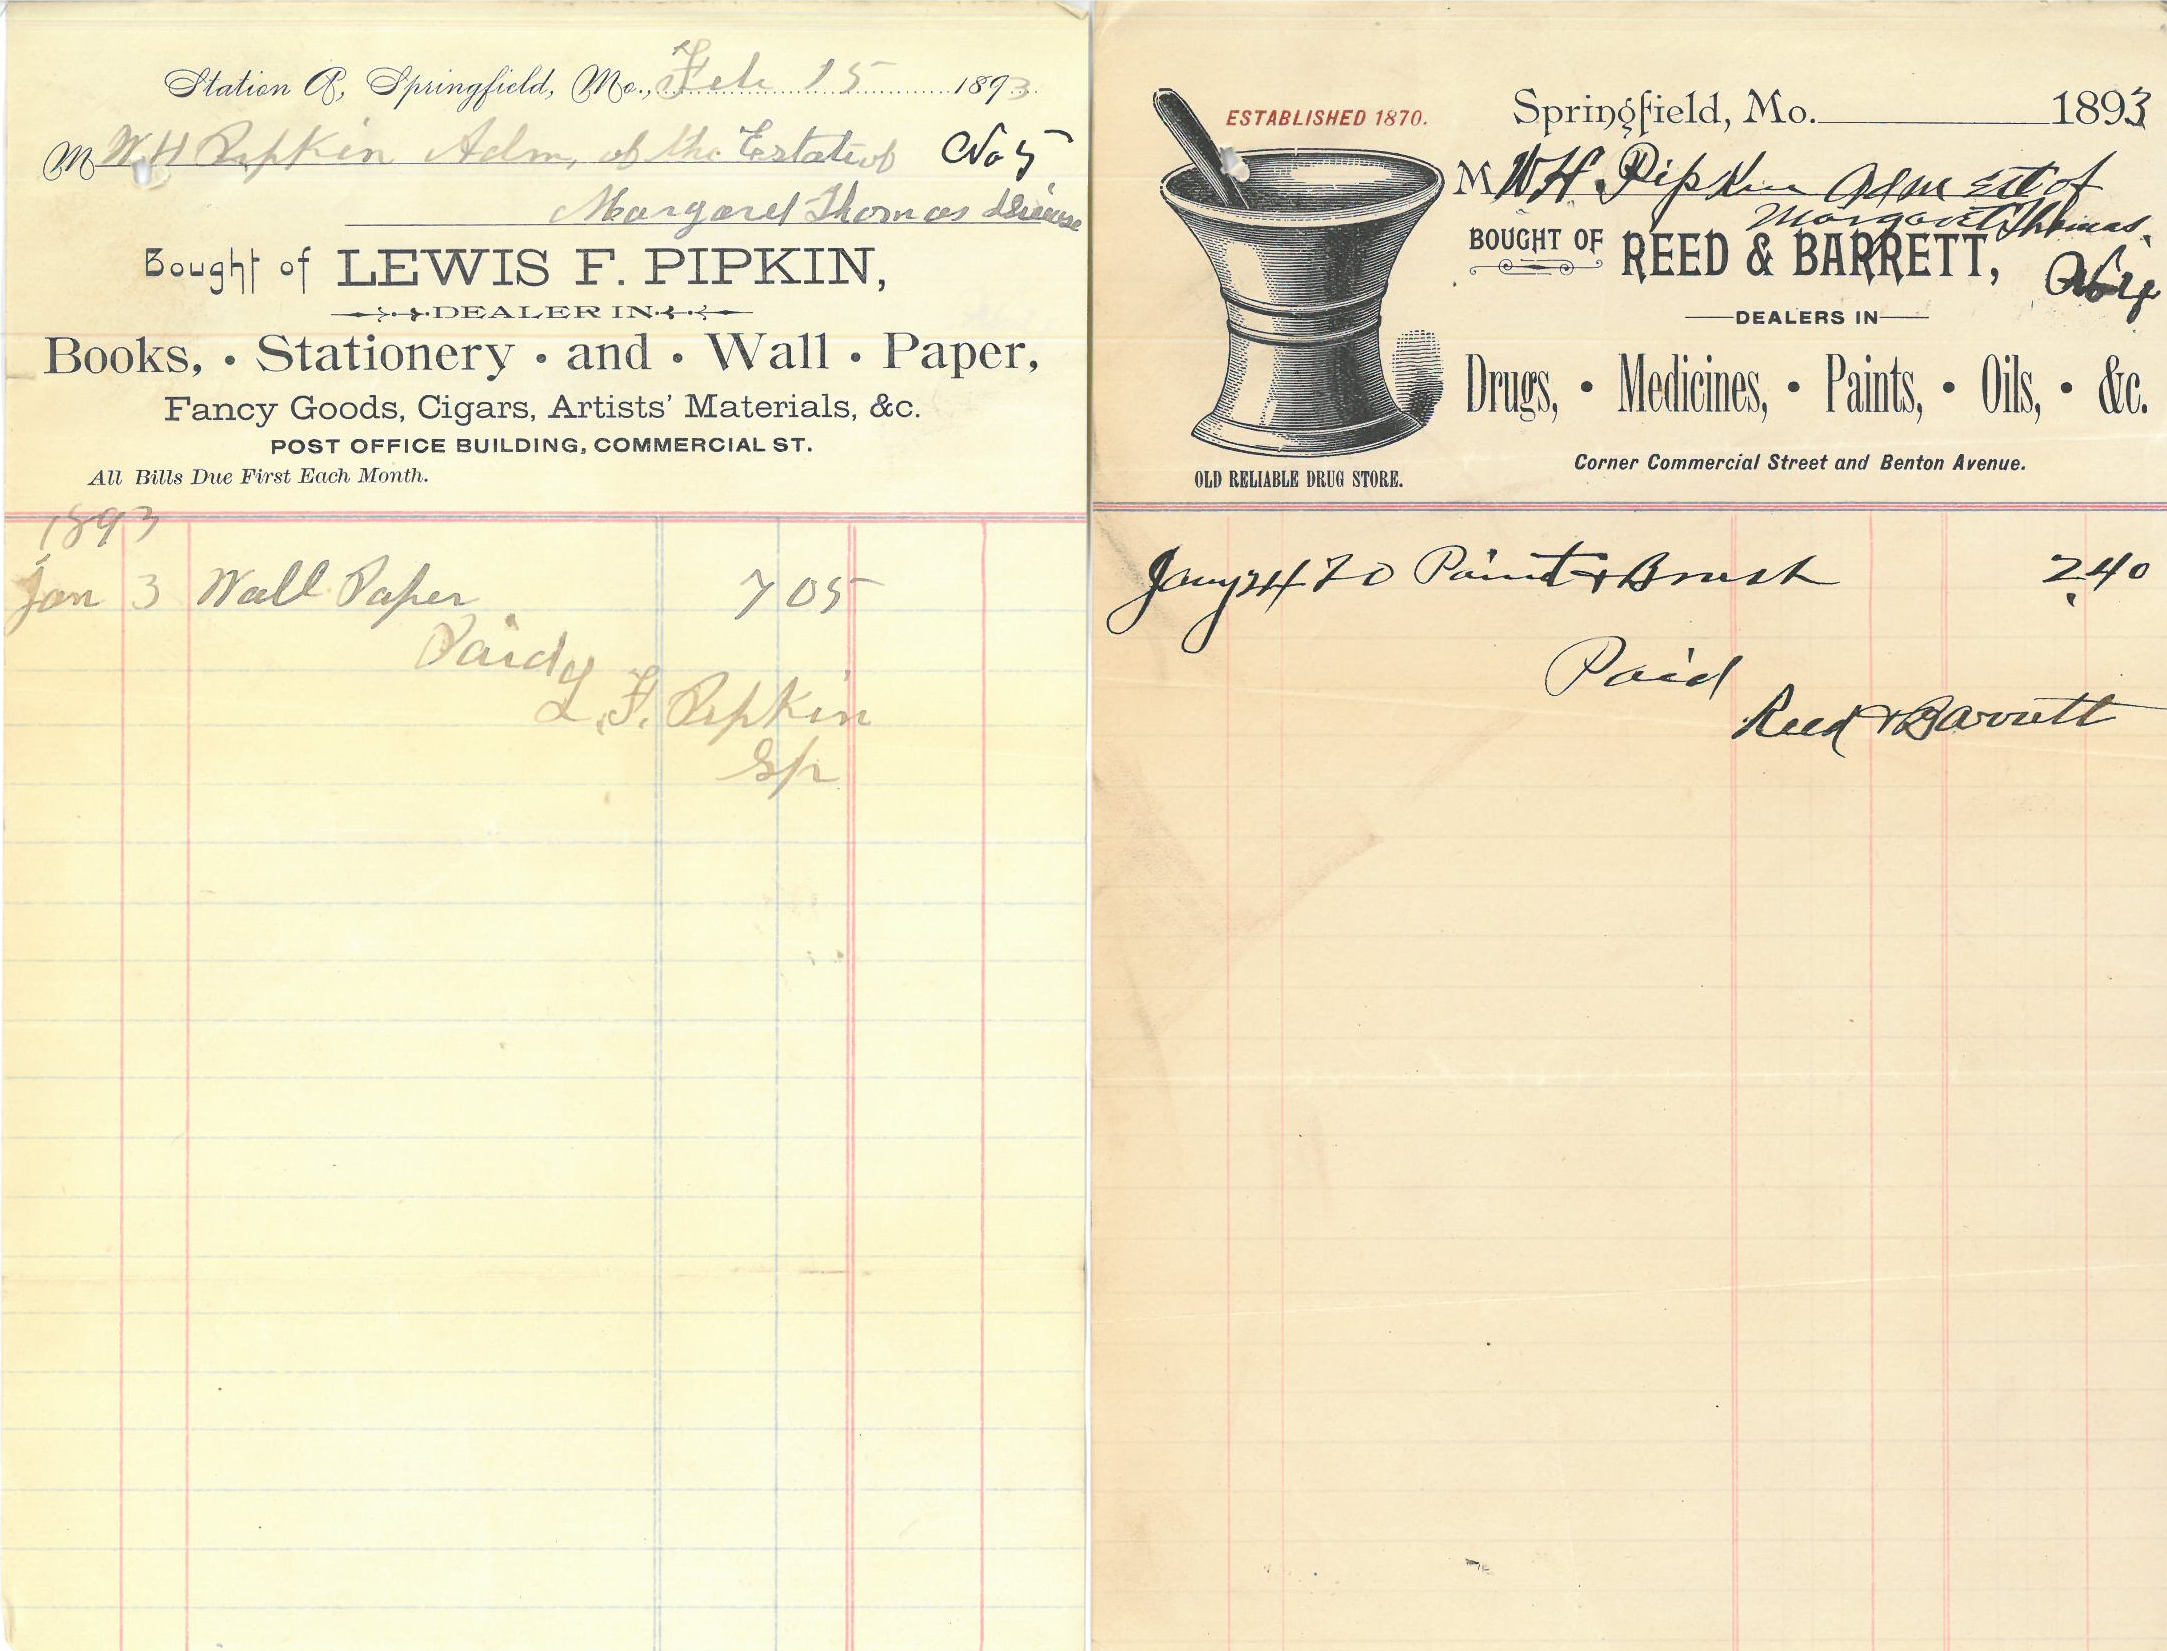 Station A, Springfield, Mo., Feb 15 1893.
M W H Pipkin Adm, of the Estate of No 5
Margaret Thomas
Bought of LEWIS F. PIPKIN,
DEALER IN
Books, • Stationery • and • Wall • Paper,
Fancy Goods, Cigars, Artists' Materials, &c.
POST OFFICE BUILDING, COMMERCIAL ST.
All Bills Due First Each Month.
1893
Jan 3 Wall Paper 7 05
Paid
L. F. Pipkin
ESTABLISHED 1870.
OLD RELIABLE DRUG STORE.
Springfield, Mo. 1893
M W.H. Pipkin Adm Est of
Margaret Thomas.
BOUGHT OF REED & BARRETT,
No 4
DEALERS IN
Drugs, • Medicines, • Paints, • Oils, • &c.
Corner Commercial Street and Benton Avenue.
Jany 24 To Paint & Brush 2.40
Paid
Reed & Barrett